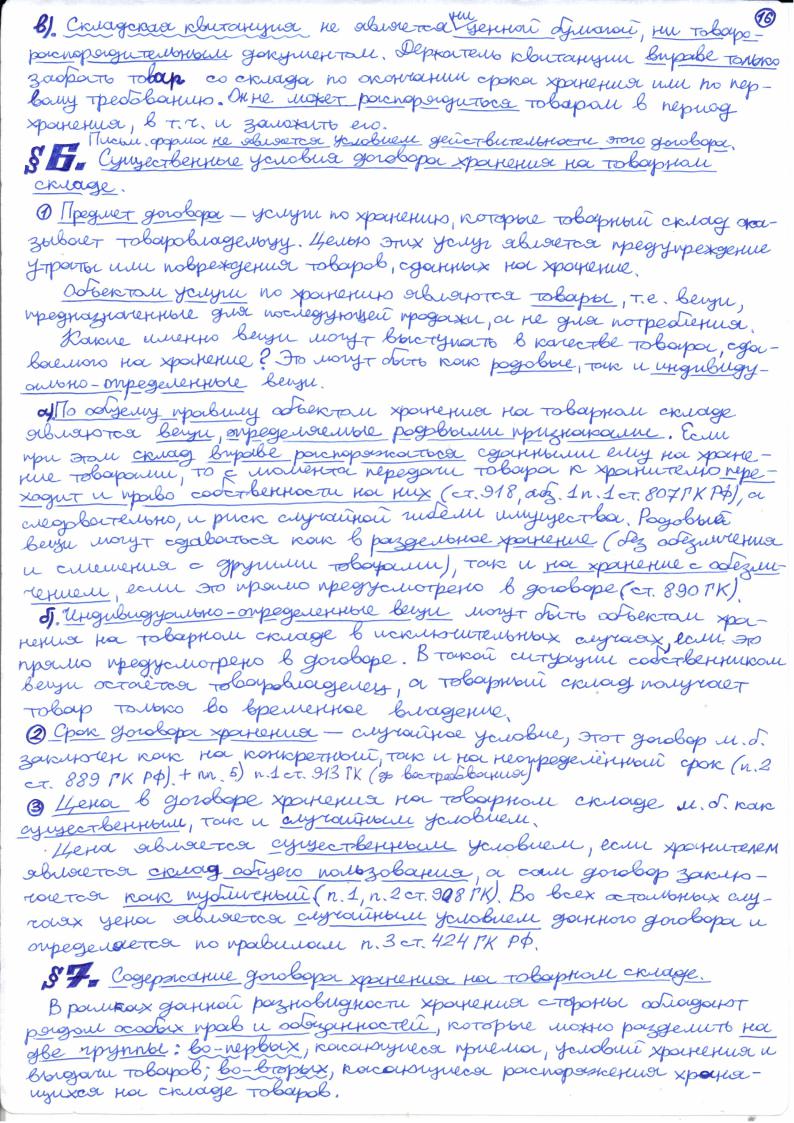 16
в). Складская квитанция не является ни ценной бумагой, ни товаро-
распорядительным документом. Держатель квитанции вправе только
забрать товар со склада по окончании срока хранения или по пер-
вому требованию. Он не может распорядиться товаром в период
хранения, в т.ч. и заложить его.
Письм. форма не является условием действительности этого договора.
§ 6. Существенные условия договора хранения на товарном
складе.
① Предмет договора – услуги по хранению, которые товарный склад ока-
зывает товаровладельцу. Целью этих услуг является предупреждение
утраты или повреждения товаров, сданных на хранение.
Объектом услуги по хранению являются товары, т.е. вещи,
предназначенные для последующей продажи, а не для потребления.
Какие именно вещи могут выступать в качестве товара, сда-
ваемого на хранение? Это могут быть как родовые, так и индивиду-
ально-определенные вещи.
а) По общему правилу объектом хранения на товарном складе
являются вещи, определяемые родовыми признаками. Если
при этом склад вправе распоряжаться сданными ему на хране-
ние товарами, то с момента передачи товара к хранителю пере-
ходит и право собственности на них (ст. 918, абз. 1 п. 1 ст. 807 ГК РФ), а
следовательно, и риск случайной гибели имущества. Родовые
вещи могут сдаваться как в раздельное хранение (без обезличения
и смешения с другими товарами), так и на хранение с обезли-
чением, если это прямо предусмотрено в договоре (ст. 890 ГК).
б). Индивидуально-определенные вещи могут быть объектом хра-
нения на товарном складе в исключительных случаях, если это
прямо предусмотрено в договоре. В такой ситуации собственником
вещи остаётся товаровладелец, а товарный склад получает
товар только во временное владение.
② Срок договора хранения – случайное условие, этот договор м.б.
заключен как на конкретный, так и на неопределённый срок (п. 2
ст. 889 ГК РФ). + пп. 5) п. 1 ст. 913 ГК (до востребования)
③ Цена в договоре хранения на товарном складе м.б. как
существенным, так и случайным условием.
Цена является существенным условием, если хранителем
является склад общего пользования, а сам договор заклю-
чается как публичный (п. 1, п. 2 ст. 908 ГК). Во всех остальных слу-
чаях цена является случайным условием данного договора и
определяется по правилам п. 3 ст. 424 ГК РФ.
§ 7. Содержание договора хранения на товарном складе.
В рамках данной разновидности хранения стороны обладают
рядом особых прав и обязанностей, которые можно разделить на
две группы: во-первых, касающиеся приема, условий хранения и
выдачи товаров; во-вторых, касающиеся распоряжения храня-
щихся на складе товаров.